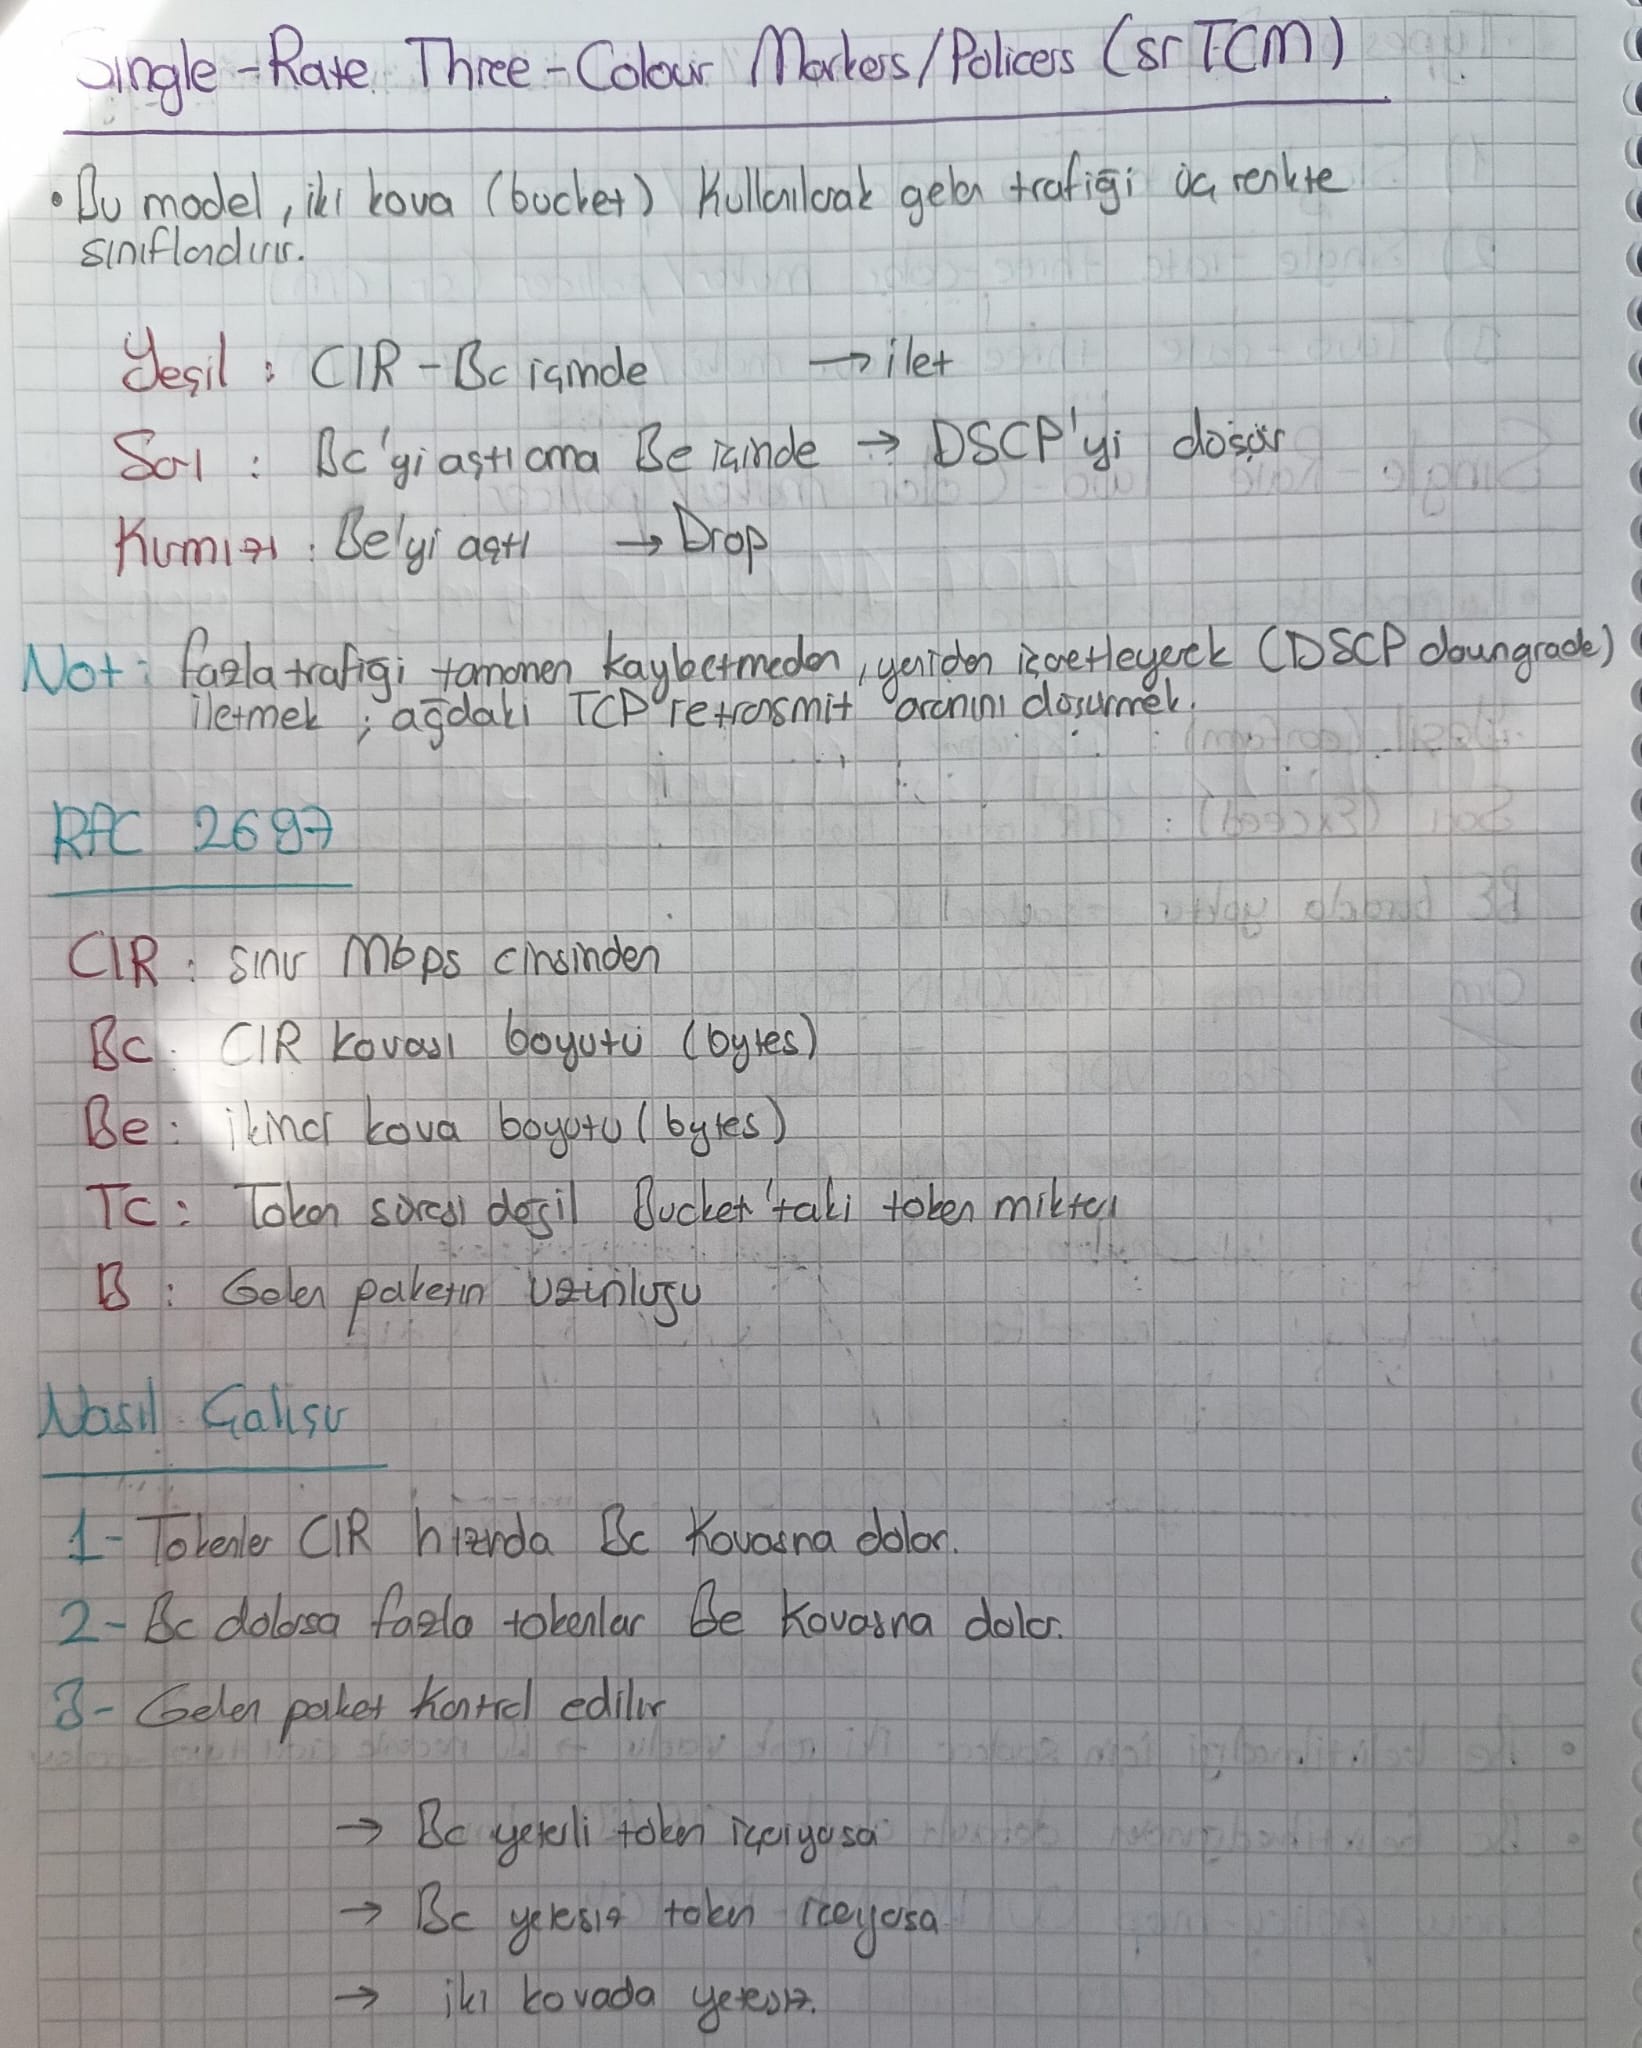 Single-Rate Three-Colour Markers/Policers (srTCM)
• Bu model, iki kova (bucket) kullanılarak gelen trafiği üç renkte
sınıflandırır.
Yeşil : CIR - Bc içinde → ilet
Sarı : Bc'yi aştı ama Be içinde → DSCP'yi düşür
Kırmızı : Be'yi aştı → Drop
Not : fazla trafiği tamamen kaybetmeden, yeniden işaretleyerek (DSCP downgrade)
iletmek ; ağdaki TCP retransmit oranını düşürmek.
RFC 2697
CIR : sınır Mbps cinsinden
Bc : CIR kovası boyutu (bytes)
Be : ikinci kova boyutu (bytes)
Tc : Token süresi değil Bucket'taki token miktarı
B : Gelen paketin uzunluğu
Nasıl Çalışır
1- Tokenler CIR hızında Bc kovasına dolar.
2- Bc dolarsa fazla tokenlar Be kovasına dolar.
3- Gelen paket kontrol edilir
→ Bc yeterli token içeriyosa
→ Bc yetersiz token içeriyosa
→ iki kovada yetersiz.